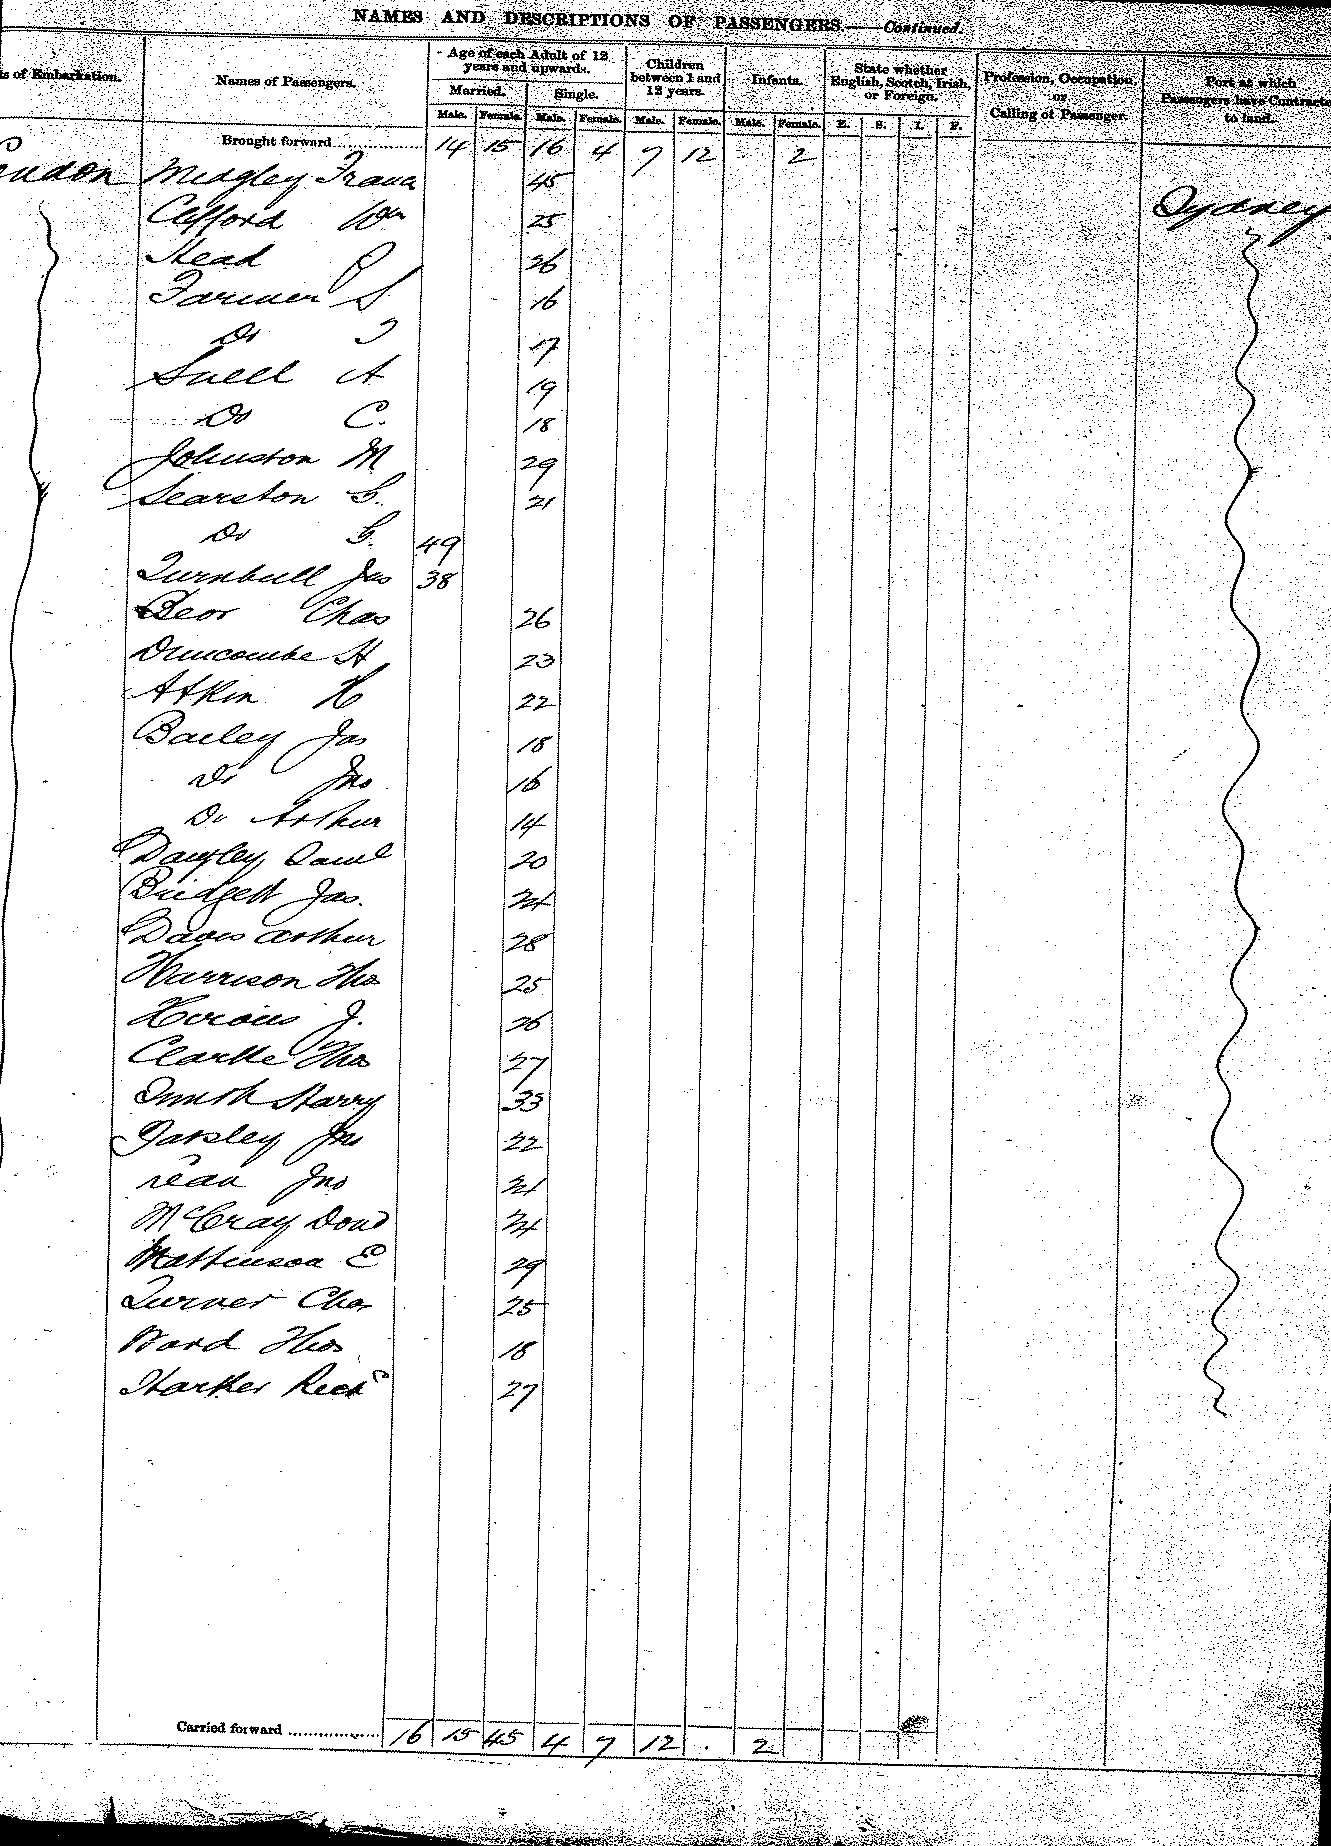 NAMES AND DESCRIPTIONS OF PASSENGERS.—Continued.
ts of Embarkation. Names of Passengers. Age of each Adult of 12 years and upwards. Children between 1 and 12 years. Infants. State whether English, Scotch, Irish, or Foreign. Profession, Occupation or Calling of Passenger. Port at which Passengers have Contracte to land.
Married. Single.
Male. Female. Male. Female. Male. Female. Male. Female. E. S. I. F.
Brought forward 14 15 16 4 7 12 2
ondon Midgley 45 Sydney
Clifford Wm 25
Head 26
Farmer S 16
Do 17
Snell A 19
Do C. 18
Johnston M 29
Searston G. 21
Do G. 49
Turnbull Jas 38
Beor Chas 26
Duncombe H 23
Atkin H 22
Bailey Jas 18
Do Jno 16
Do Arthur 14
Saml 20
Bridgett Jas. 24
Davis Arthur 28
Harrison Thos 25
J. 26
Clarke Thos 27
Smith Harry 33
Jno 22
Jno 21
McCray Dond 24
Mattinson E 29
Turner Chas 25
Ward Thos 18
Harker Richd 27
Carried forward 16 15 45 4 7 12 . 2